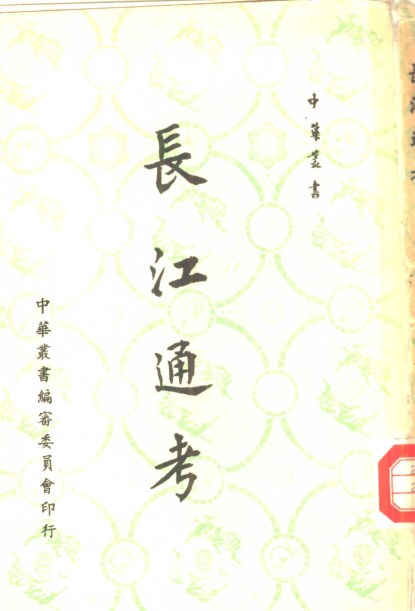 中華叢書
長江通考
中華叢書編審委員會印行